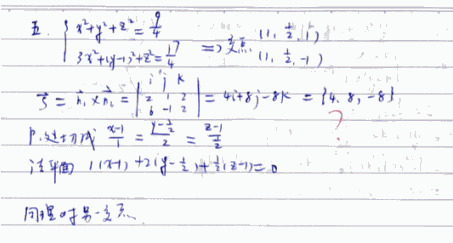 五. { x²+y²+z²=9/4
3x²+(y-1)²+z²=17/4 ⇒ 交点 (1, 1/2, 1)
(1, 1/2, -1)
S = n₁ × n₂ = | i j k
2 1 2
6 -1 2 | = 4i+8j-8k = {4, 8, -8}
?
切线 (x-1)/1 = (y-1/2)/2 = (z-1)/(1/2)
法平面 1(x-1)+2(y-1/2)+1/2(z-1)=0
同理可求另一交点